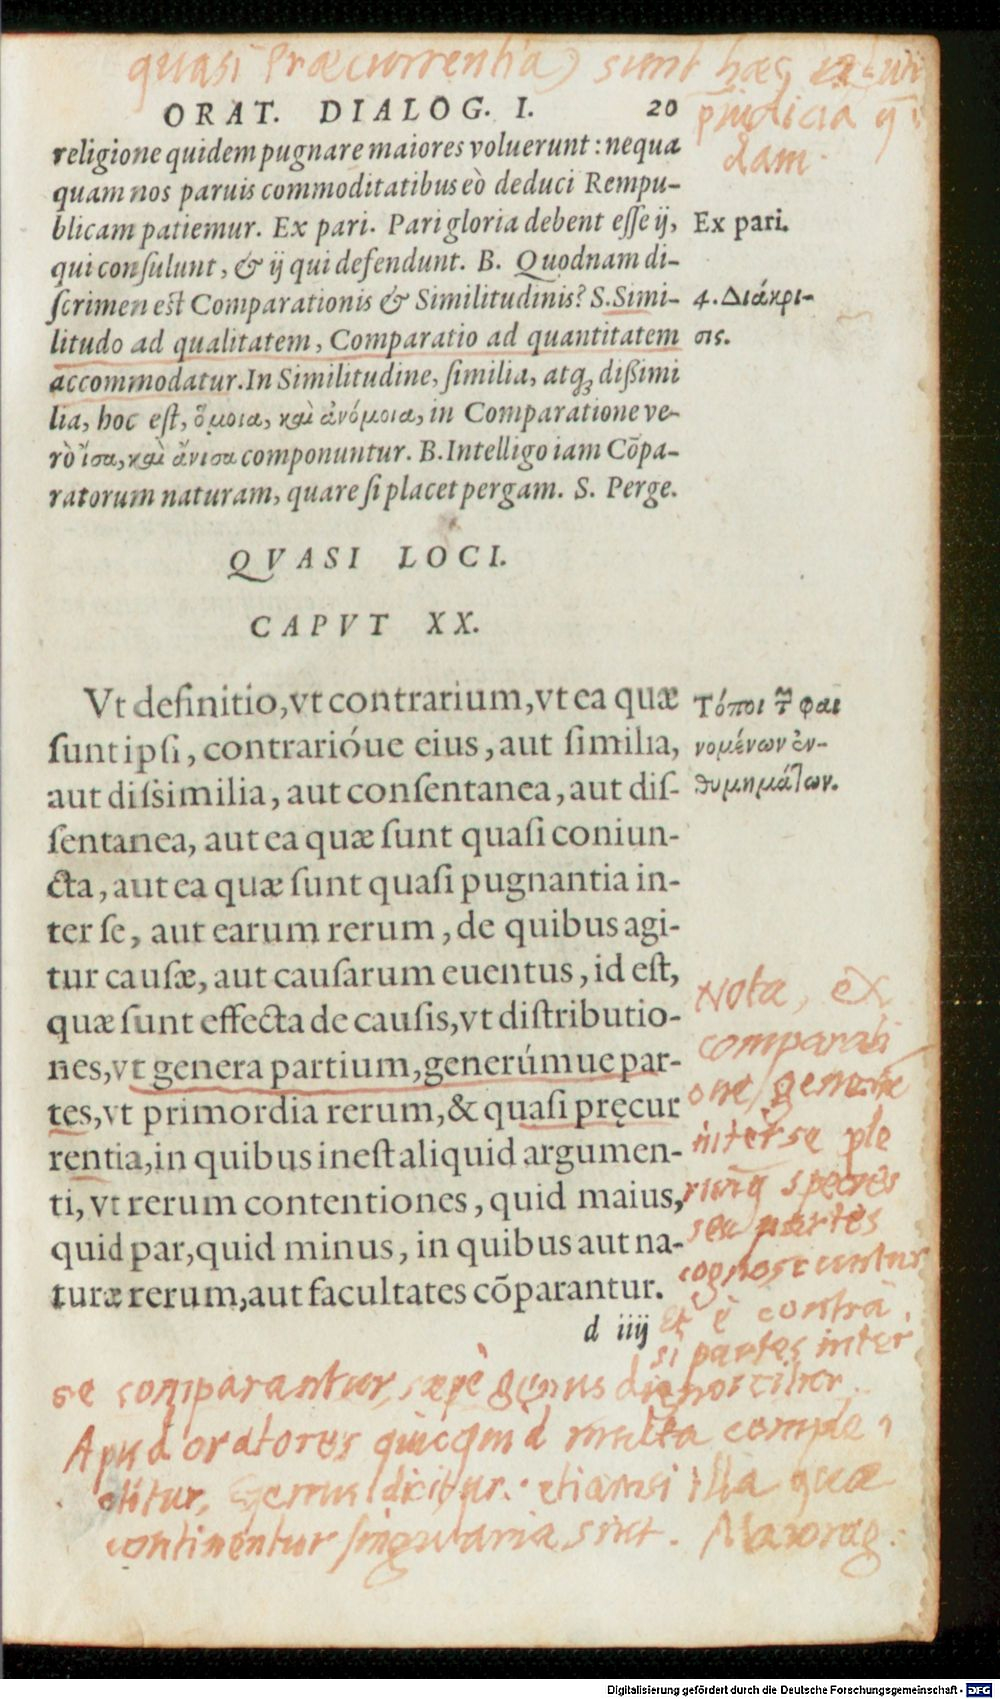 quasi Præcurrentia) sunt hæc,
ORAT. DIALOG. I. 20
dam.
religione quidem pugnare maiores voluerunt: nequa
quam nos paruis commoditatibus eò deduci Rempu-
blicam patiemur. Ex pari. Pari gloria debent esse ij,
Ex pari.
qui consulunt, & ij qui defendunt. B. Quodnam di-
scrimen est Comparationis & Similitudinis? S. Simi-
4. Διάκρι-
litudo ad qualitatem, Comparatio ad quantitatem
σις.
accommodatur. In Similitudine, similia, atq; dißimi
lia, hoc est, ὅμοια, καὶ ἀνόμοια, in Comparatione ve-
rò ἴσα, καὶ ἄνισα componuntur. B. Intelligo iam Cōpa-
ratorum naturam, quare si placet pergam. S. Perge.
QVASI LOCI.
CAPVT XX.
Vt definitio, vt contrarium, vt ea quæ
sunt ipsi, contrarióue eius, aut similia,
aut dissimilia, aut consentanea, aut dis-
sentanea, aut ea quæ sunt quasi coniun-
cta, aut ea quæ sunt quasi pugnantia in-
ter se, aut earum rerum, de quibus agi-
tur causæ, aut causarum euentus, id est,
quæ sunt effecta de causis, vt distributio-
nes, vt genera partium, generúmue par-
tes, vt primordia rerum, & quasi pręcur
rentia, in quibus inest aliquid argumen-
ti, vt rerum contentiones, quid maius,
quid par, quid minus, in quibus aut na-
turæ rerum, aut facultates cōparantur.
d iiij
Τόποι τῶν φαι
νομένων ἐν-
θυμημάτων.
Nota, ex
comparati
one generis
inter se ple
rumq species
seu partes
cognoscuntur
Et è contrà,
si partes inter
se comparantur, sæpè genus dignoscitur.
Apud oratores quicquid multa comple
ctitur, Genus dicitur. etiamsi illa quæ
continentur singularia sint. Maiorag.
Digitalisierung gefördert durch die Deutsche Forschungsgemeinschaft - DFG